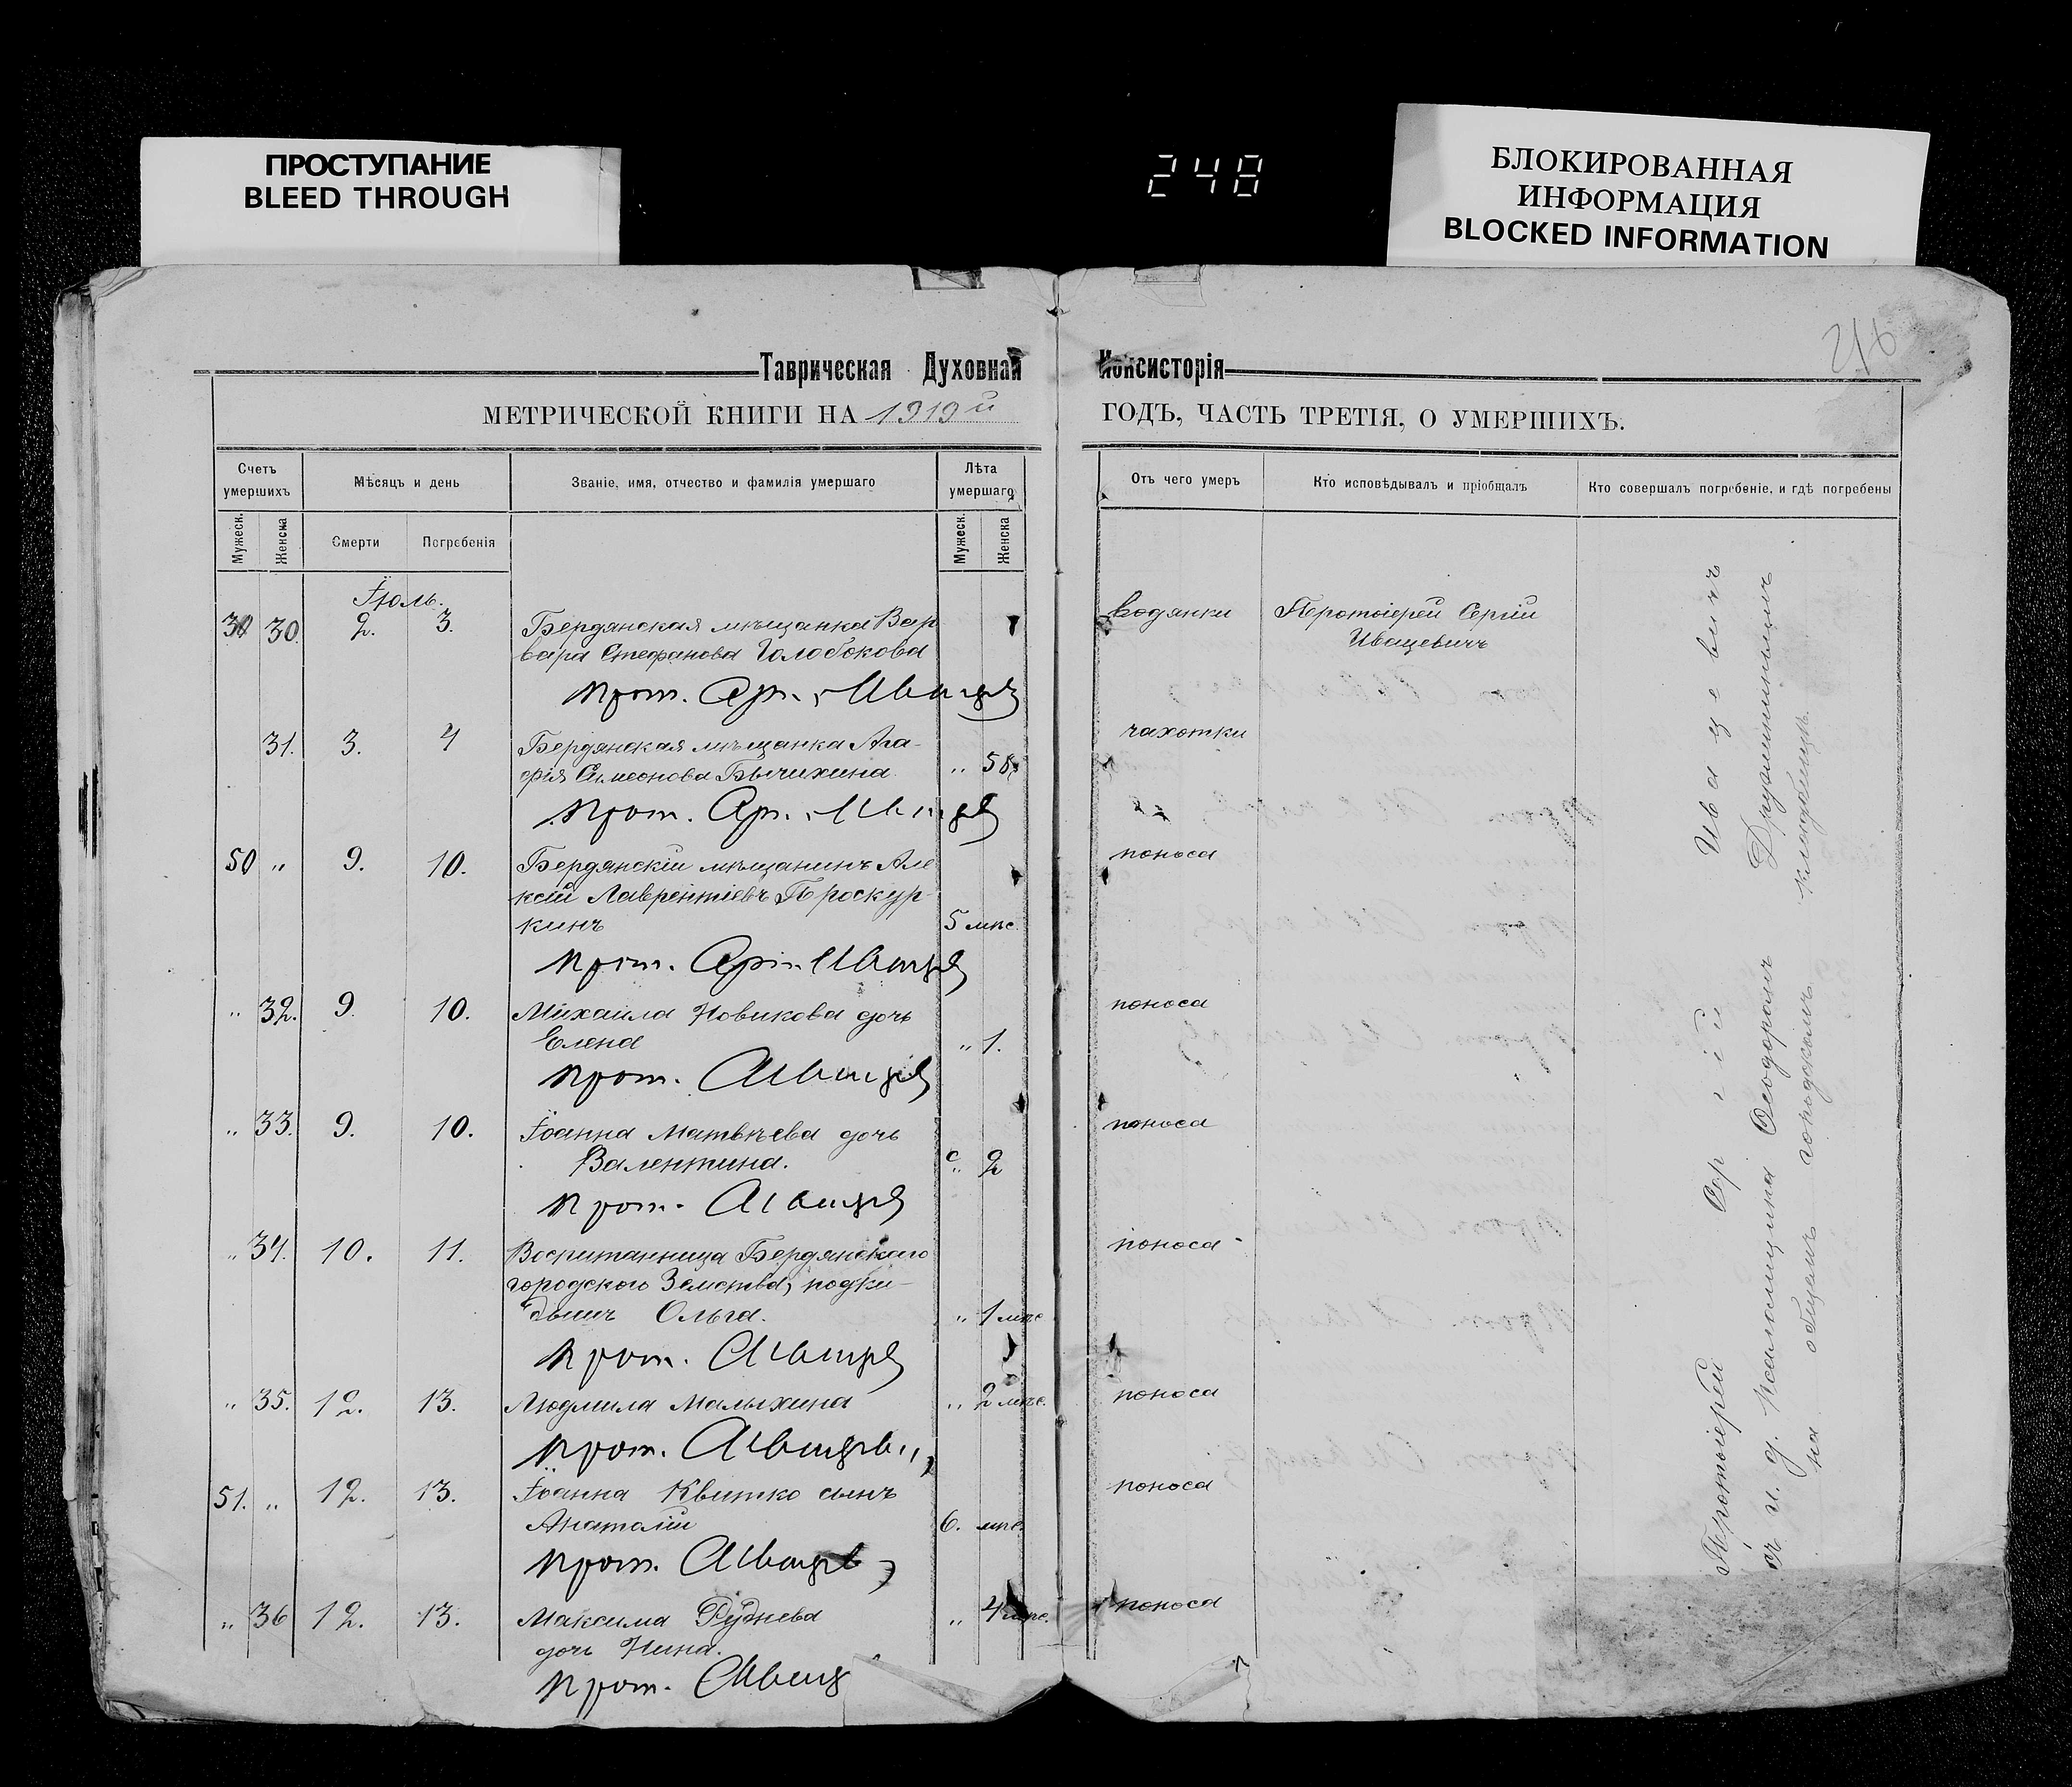 ПРОСТУПАНИЕ
BLEED THROUGH
248
БЛОКИРОВАННАЯ
ИНФОРМАЦИЯ
BLOCKED INFORMATION
Таврическая Духовная Консисторія
МЕТРИЧЕСКОЙ КНИГИ НА 1919й ГОДЪ, ЧАСТЬ ТРЕТІЯ, О УМЕРШИХЪ.
Счетъ умершихъ
Мѣсяцъ и день
Званіе, имя, отчество и фамилія умершаго
Лѣта умершаго
Отъ чего умеръ
Кто исповѣдывалъ и пріобщалъ
Кто совершалъ погребеніе, и гдѣ погребены
Мужеск. Женска Смерти Погребенія Мужеск. Женска
Іюль.
30. 2. 3. Бердянская мѣщанка Вар водянки Протоіерей Сергій
вара Стефанова Голобокова Иващевичъ
Прот.
31. 3. 4 Бердянская мѣщанка Ага- чахотки
фія Симеонова Бычихина „ 58
Прот.
50 „ 9. 10. Бердянскій мѣщанинъ Але поноса
ксій Лаврентіевъ Проскур-
кинъ 5 мѣс.
Прот.
„ 32. 9. 10. Михаила Новикова дочь поноса
Елена „ 1.
Прот.
„ 33. 9. 10. Іоанна Матвѣева дочь поноса
Валентина. 2
Прот.
„ 34. 10. 11. Воспитанница Бердянскаго поноса
городского Земства, подки-
дышъ Ольга. „ 1 мѣс
Прот.
„ 35. 12. 13. Людмила Малыхина „ 2 мѣс. поноса
Прот.
51. „ 12. 13. Іоанна Квитко сынъ поноса
Анатолій 6. мѣс.
Прот.
„ 36 12. 13. Максима Руднева „ 4 мѣс. поноса
дочь Нина.
Прот.
Протоіерей Сергій Иващевичъ
съ и. д. псаломщика Ѳеодоромъ
на общемъ городскомъ кладбищѣ.